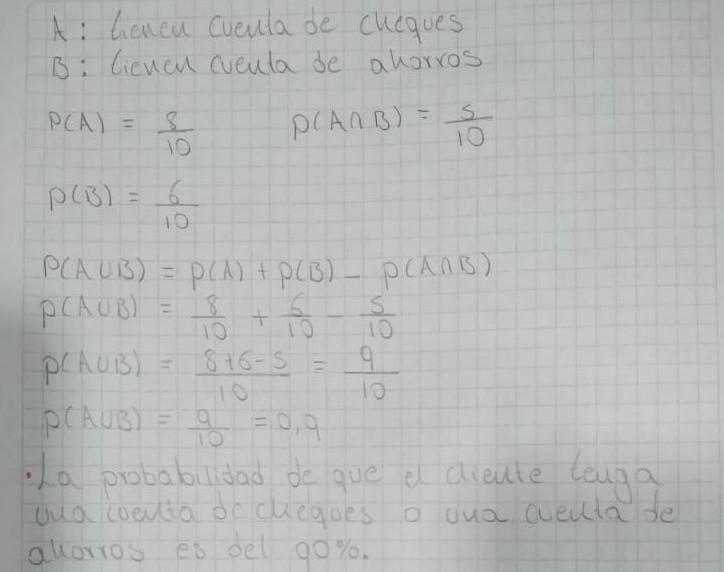 A: tienen cuenta de cheques
B: tienen cuenta de ahorros
P(A) = 8/10    P(A∩B) = 5/10
P(B) = 6/10
P(A∪B) = P(A) + P(B) - P(A∩B)
P(A∪B) = 8/10 + 6/10 - 5/10
P(A∪B) = 8+6-5/10 = 9/10
P(A∪B) = 9/10 = 0,9
·La probabilidad de que el cliente tenga
una cuenta de cheques o una cuenta de
ahorros es del 90%.